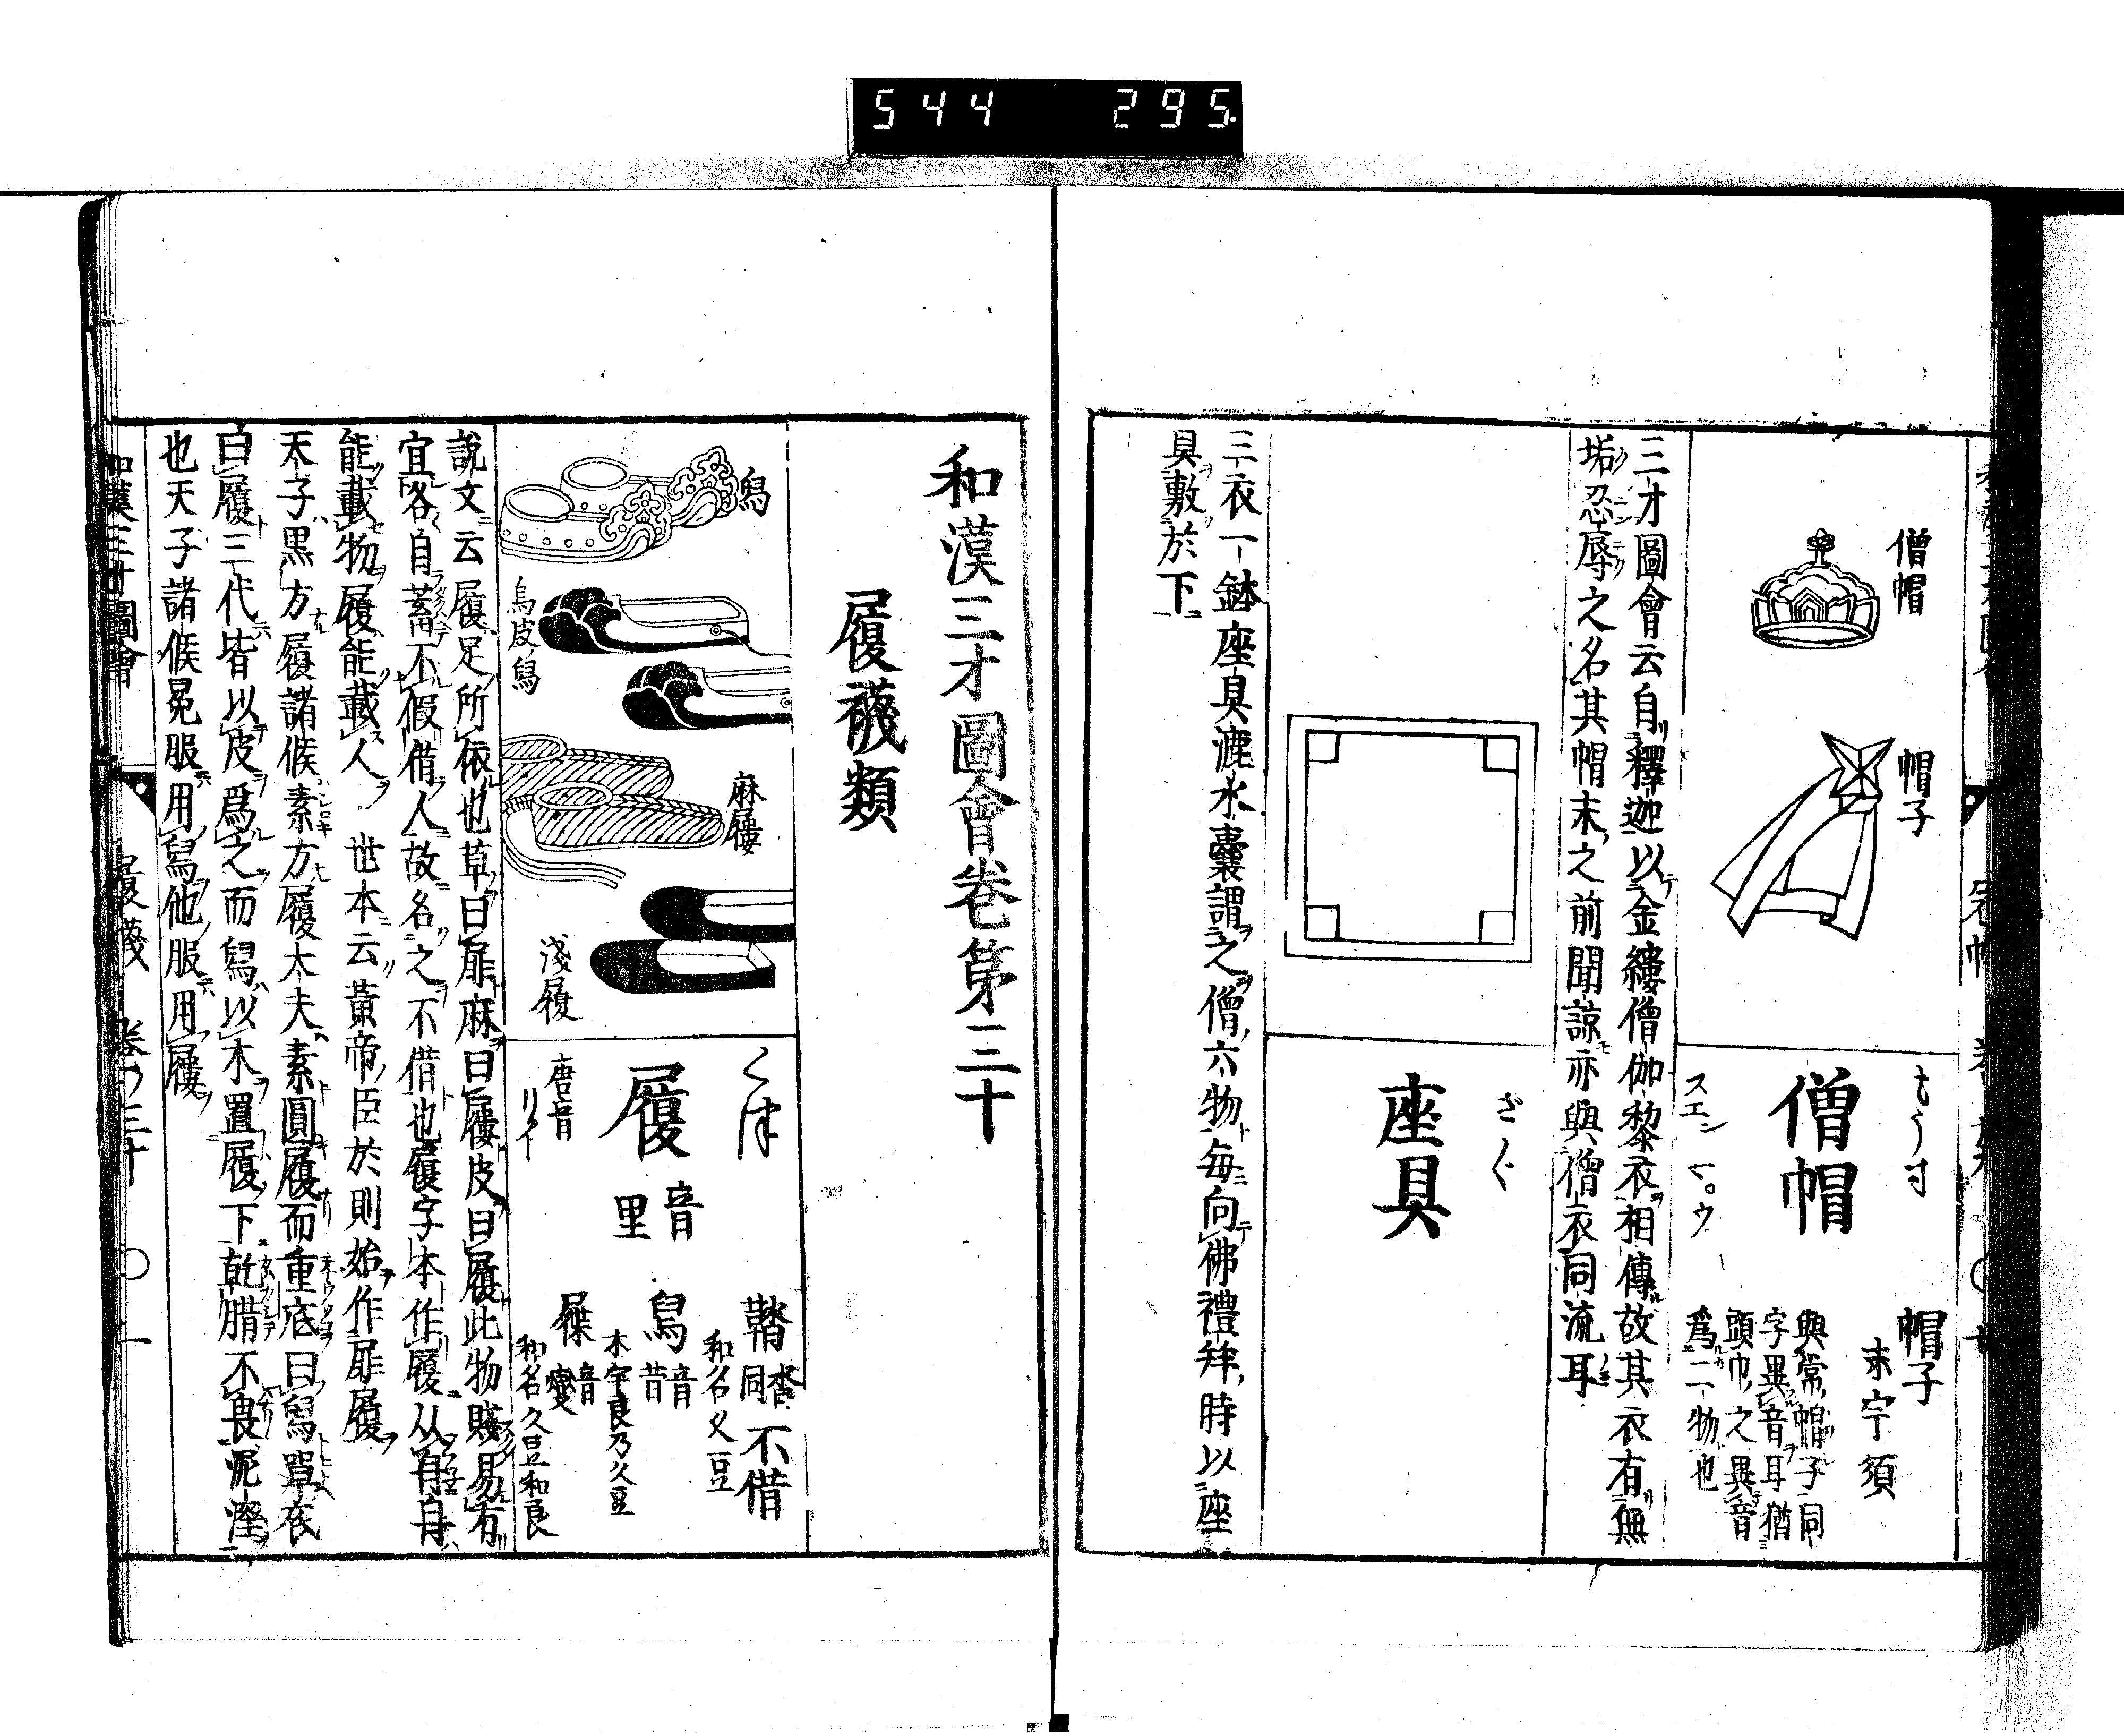 544 295.
僧帽
帽子
もうす
僧帽
スエン マ゜ウ
帽子
末宇須
與常帽子同
字異音耳猶
頭巾之異音
爲二物也
三才圖會云自釋迦以金縷僧伽黎衣相傳故其衣有無
垢忍辱之名其帽末之前聞諒亦與僧衣同流耳
ざぐ
座具
三衣一鉢座具漉水囊謂之僧六物毎向佛禮拜時以座
具敷於下
和漢三才圖會卷第三十
履襪類
舃
烏皮舃
麻屨
淺履
くつ
履
音里
唐音
リイ
鞜
沓同
不借
和名久豆
舃
音昔
木宇良乃久豆
屧
音燮
和名久豆和良
說文云履足所依也草曰屝麻曰屨皮曰履此物賤易有
宜各自蓄不假借人故名之不借也履字本作履从舟舟
能載物履能載人 世本云黃帝臣於則始作屝履
天子黒方履諸侯素方履大夫素圓履而重底曰舃單衣
白履三代皆以皮爲之而舃以木置履下乾腊不畏泥溼
也天子諸侯冕服用舃他服用屨
和漢三才圖會 履襪 卷ノ三十 〇一